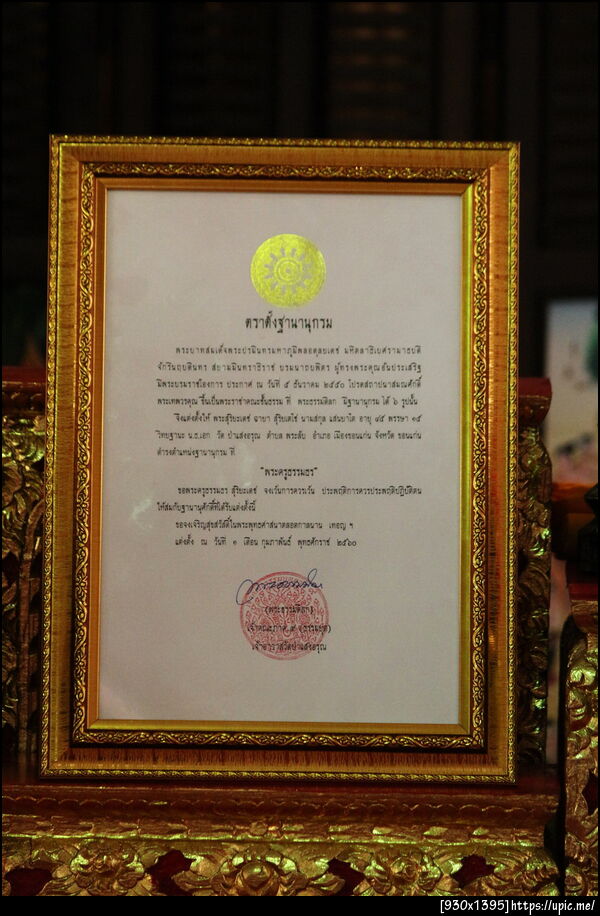 ตราตั้งฐานานุกรม
พระบาทสมเด็จพระปรมินทรมหาภูมิพลอดุลยเดช มหิตลาธิเบศรามาธบดี
จักรีนฤบดินทร สยามมินทราธิราช บรมนาถบพิตร ผู้ทรงพระคุณอันประเสริฐ
มีพระบรมราชโองการ ประกาศ ณ วันที่ ๕ ธันวาคม ๒๕๕๐ โปรดสถาปนาสมณศักดิ์
พระเทพวรคุณ ขึ้นเป็นพระราชาคณะชั้นธรรม ที่ พระธรรมดิลก มีฐานานุกรม ได้ ๖ รูปนั้น
จึงแต่งตั้งให้ พระสุริยะเดช ฉายา สุริยเตโช นามสกุล แสนบาโต อายุ พรรษา ๑๕
วิทยฐานะ น.ธ.เอก วัด ป่าแสงอรุณ ตำบล พระลับ อำเภอ เมืองขอนแก่น จังหวัด ขอนแก่น
ดำรงตำแหน่งฐานานุกรม ที่
"พระครูธรรมธร"
ขอพระครูธรรมธร สุริยะเดช จงเว้นการควรเว้น ประพฤติการควรประพฤติปฏิบัติตน
ให้สมกับฐานานุศักดิ์ที่ได้รับแต่งตั้งนี้
ขอจงเจริญสุขสวัสดิ์ในพระพุทธศาสนาตลอดกาลนาน เทอญ ฯ
แต่งตั้ง ณ วันที่ ๑ เดือน กุมภาพันธ์ พุทธศักราช ๒๕๖๐
(พระธรรมดิลก)
เจ้าคณะภาค ๙ (ธรรมยุต)
เจ้าอาวาสวัดป่าแสงอรุณ
[930x1395]https://upic.me/